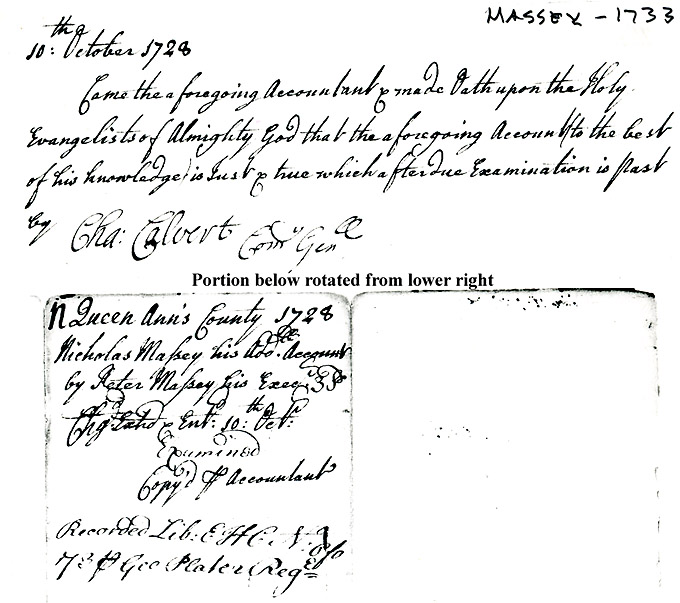 MASSEY - 1733
10:th October 1728
Came the aforegoing Accountant & made Oath upon the Holy
Evangelists of Almighty God that the aforegoing Account (to the best
of his knowledge) is Just & true which after due Examination is past
by Cha: Calvert Comry Genll
Portion below rotated from lower right
Queen Ann's County 1728
Nicholas Massey his Add.ll Account
by Peter Massey his Execr
Chg'd & Ent: 10:th Octr:
Examined
Copy'd pr Accountant
Recorded Lib: E H C No
7th pr Geo Plater Regr